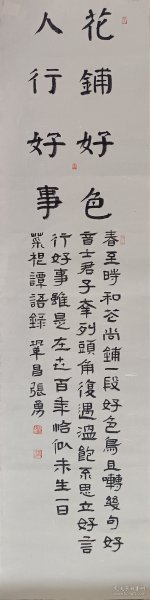 花鋪好色
人行好事
春至時和花尚鋪一段好色鳥且囀幾句好
音士君子幸列頭角復遇溫飽不思立好言
行好事雖是在世百年恰似未生一日
菜根譚語錄 鞏昌張勇